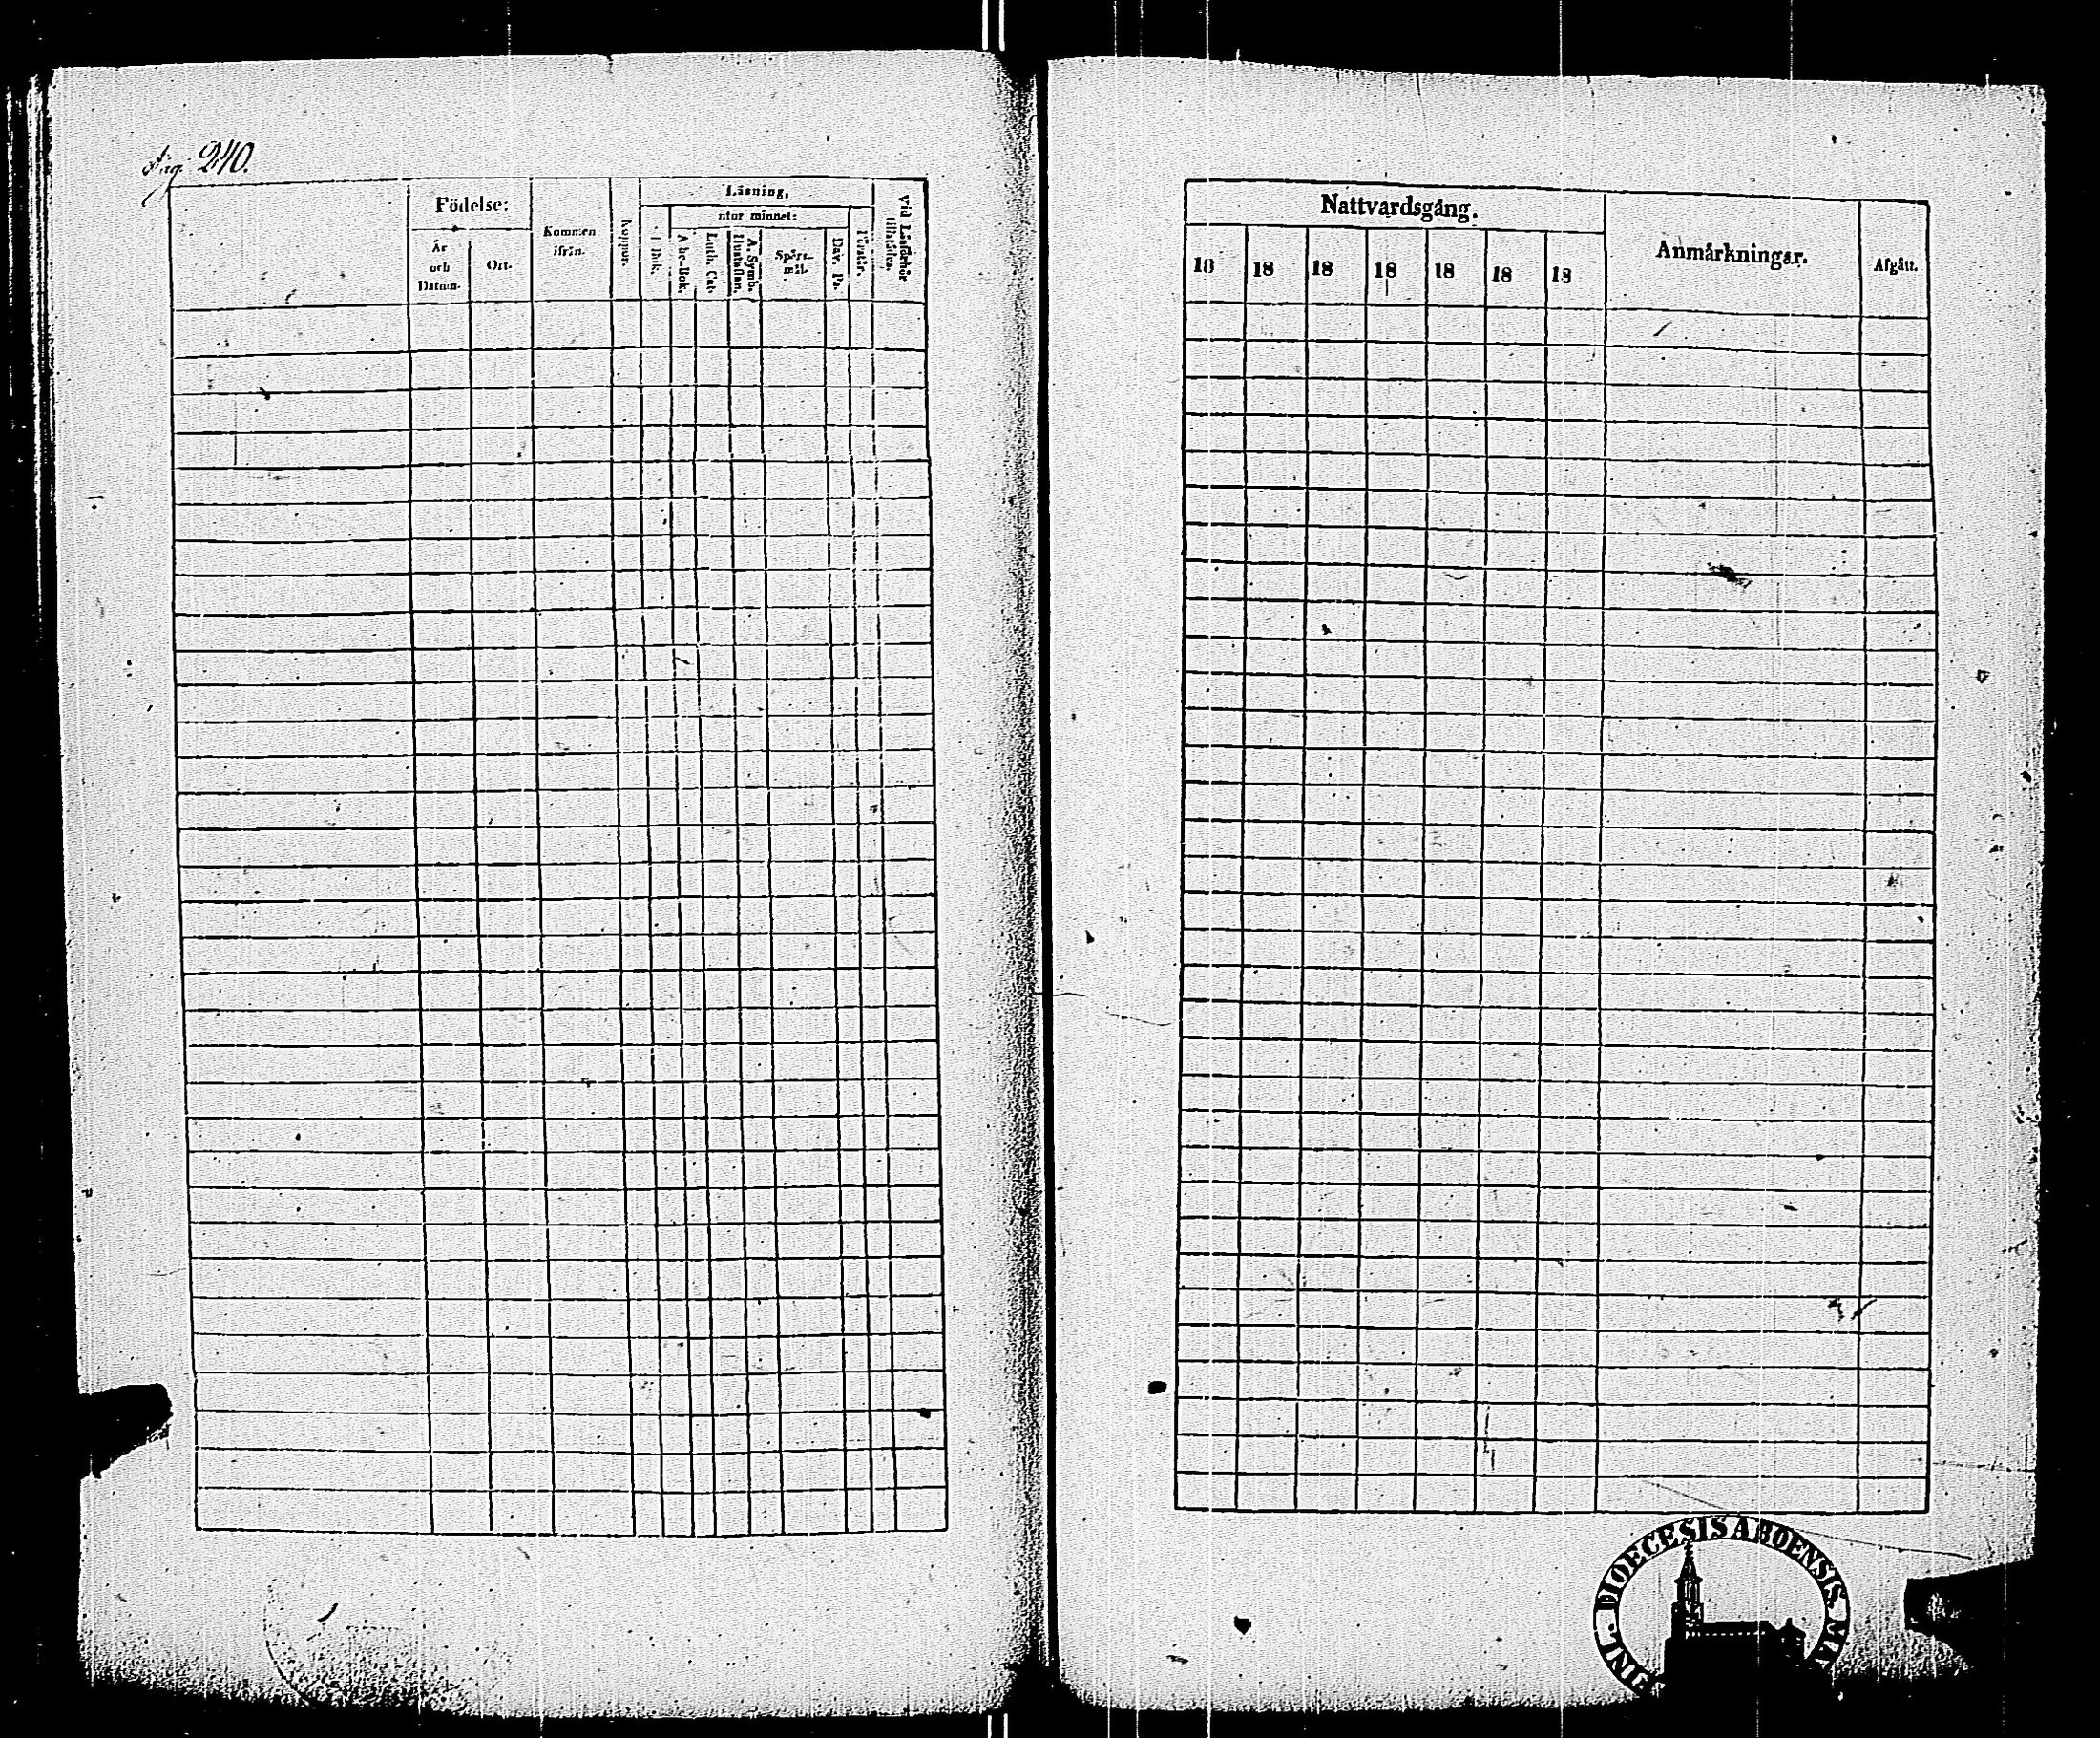 Pag. 240.
Födelse:
År
och
Datum.
Ort.
Kommen
ifrån.
Koppor.
Läsning,
utur minnet:
I Bok.
Abc-Bok.
Luth. Cat.
Hustaflan.
A. Symb.
Spörs-
mål.
Dav. Ps.
Förstår.
Vid Läsförhör
tillstädes.
Nattvardsgång.
18 18 18 18 18 18 18
Anmärkningar.
Afgått.
DIOECESIS ABOENSIS